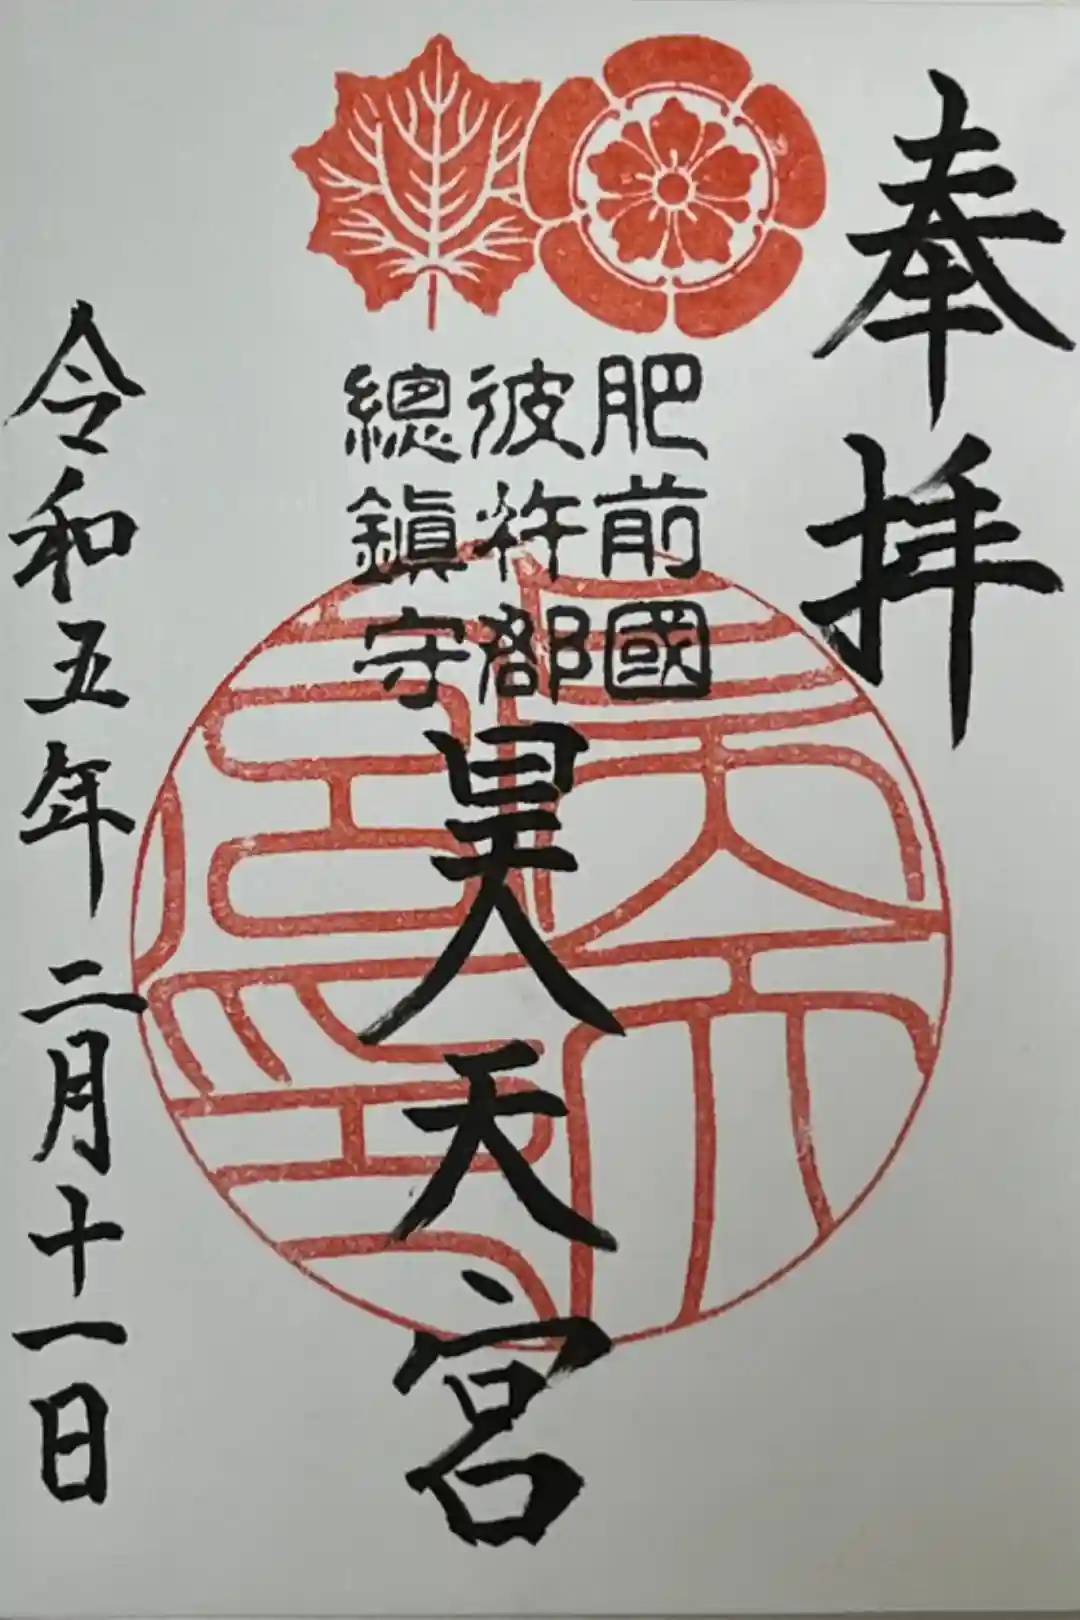 奉拝
肥前國
彼杵郡
總鎭守
昊天宮
令和五年二月十一日